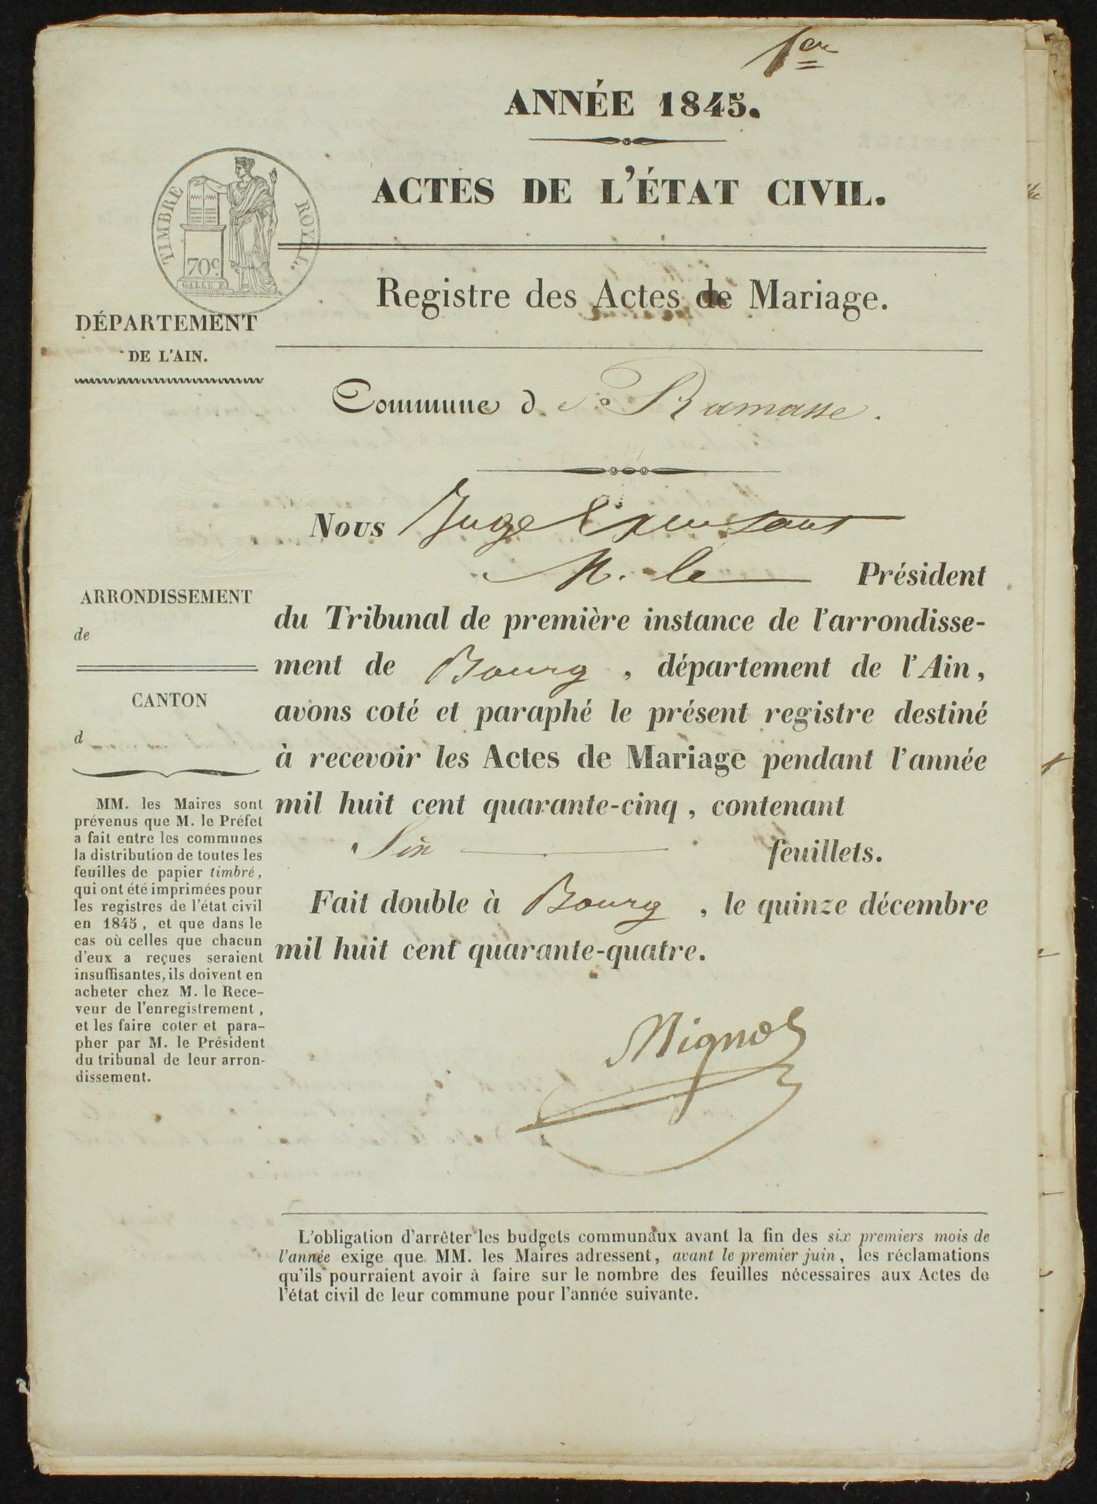 1er
ANNÉE 1845.
ACTES DE L'ÉTAT CIVIL.
TIMBRE ROYAL
70c
Registre des Actes de Mariage.
DÉPARTEMENT
DE L'AIN.
Commune de Ramasse.
Nous Juge
M. le Président
du Tribunal de première instance de l'arrondisse-
ment de Bourg, département de l'Ain,
avons coté et paraphé le présent registre destiné
à recevoir les Actes de Mariage pendant l'année
mil huit cent quarante-cinq, contenant
Six feuillets.
Fait double à Bourg, le quinze décembre
mil huit cent quarante-quatre.
ARRONDISSEMENT
de
CANTON
d
MM. les Maires sont
prévenus que M. le Préfet
a fait entre les communes
la distribution de toutes les
feuilles de papier timbré,
qui ont été imprimées pour
les registres de l'état civil
en 1845, et que dans le
cas où celles que chacun
d'eux a reçues seraient
insuffisantes, ils doivent en
acheter chez M. le Rece-
veur de l'enregistrement,
et les faire coter et para-
pher par M. le Président
du tribunal de leur arron-
dissement.
L'obligation d'arrêter les budgets communaux avant la fin des six premiers mois de
l'année exige que MM. les Maires adressent, avant le premier juin, les réclamations
qu'ils pourraient avoir à faire sur le nombre des feuilles nécessaires aux Actes de
l'état civil de leur commune pour l'année suivante.